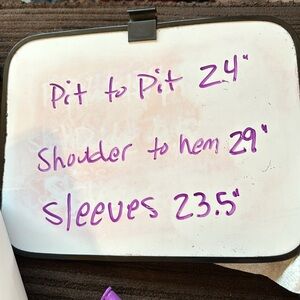 Pit to Pit 24"
Shoulder to hem 29"
Sleeves 23.5"